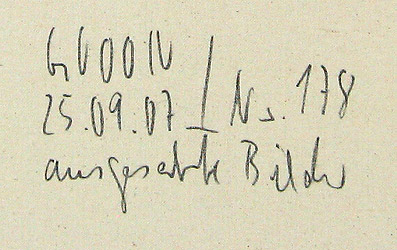 25.09.07 / Nr. 178
ausgesetzte Bilder